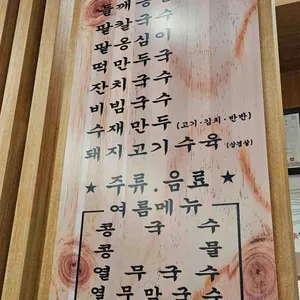 팥칼국수
팥옹심이
떡만두국
잔치국수
비빔국수
수재만두(고기·김치·반반)
돼지고기수육(삼겹살)
★주류.음료★
여름메뉴
콩국수
콩물
열무국수
열무막국수